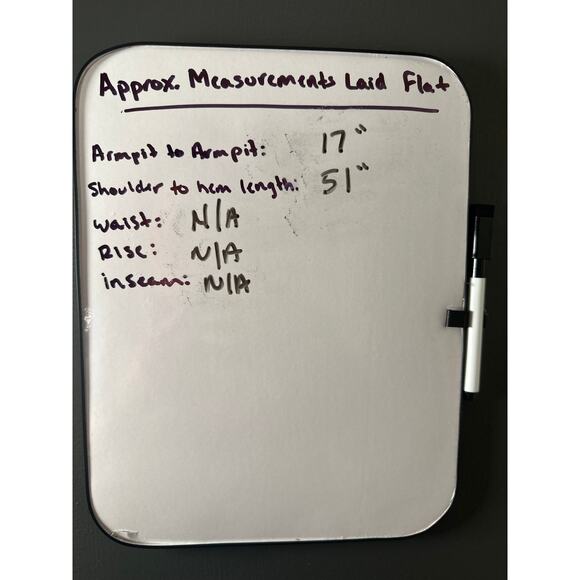 Approx. Measurements Laid Flat
Armpit to Armpit: 17"
Shoulder to hem length: 51"
waist: N/A
Rise: N/A
inseam: N/A